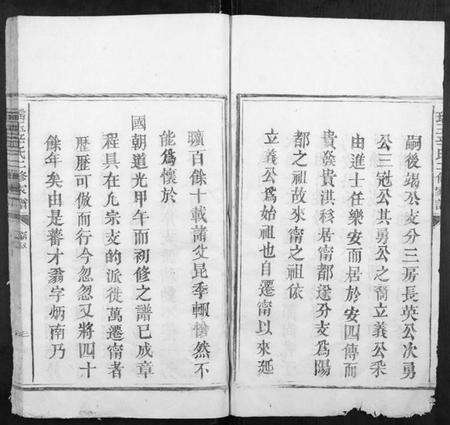 嗣後竭公支分三房長英公次勇
公三冠公其勇公之裔立義公釆
由進士任樂安而居於安四傳而
貴義貴淇移居甯都遂分支爲陽
都之祖故來甯之祖依
立義公爲始祖也自遷甯以來延
曠百餘十載諸父昆季輙愀然不
能爲懷於
國朝道光甲午而初修之譜已成章
程具在九宗支的派從萬遷甯者
歷歷可倣而行今忽忽又將四十
餘年矣由是蕃才翁字炳南乃
氏二修家譜